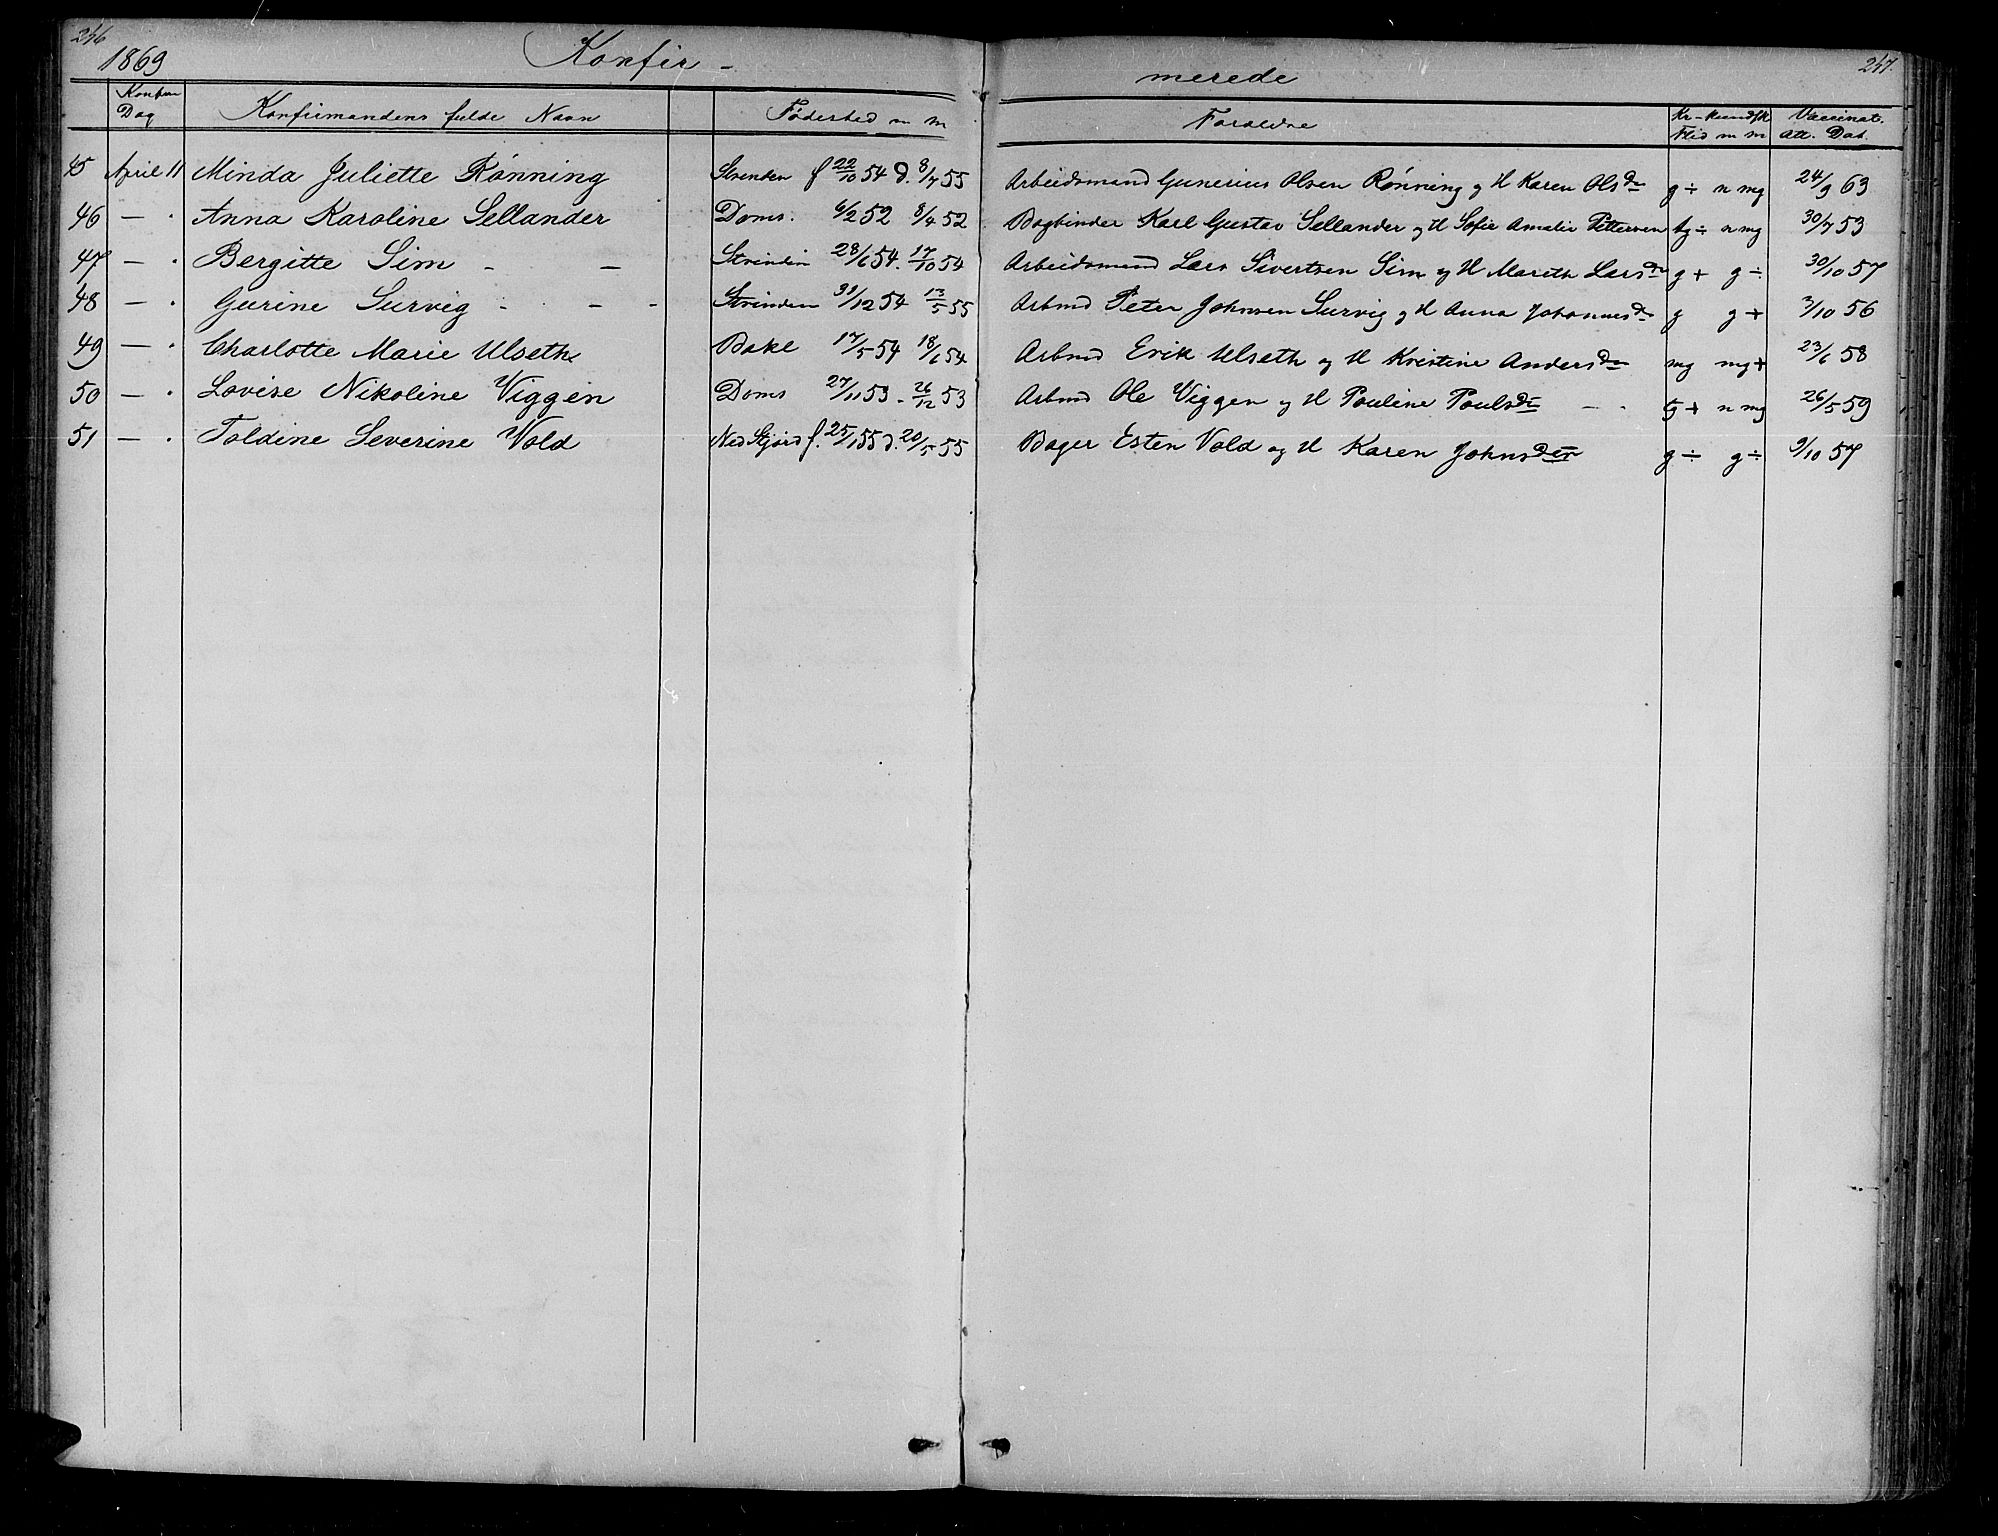 246
1869 Konfir - merede 247.
Konfirm Dag Konfirmandens fulde Navn Fødested m m Forældre Kr. Kundsk Flid m m Vaccinat. Att. Dat.
45 April 11 Minda Juliette Rønning Strinden f 22/10 54 d. 8/7 55 Arbeidsmand Gunerius Olsen Rønning og H Karen Olsdr g ÷ n mg 24/9 63
46 — · Anna Karoline Sellander Doms. 6/2 52 8/4 52 Bogbinder Karl Gustav Sellander og H Sofie Amalie Pettersen tg ÷ n mg 30/7 53
47 — · Bergitte Sim - — Strinden 28/6 54. 17/10 54 Arbeidsmand Lars Sivertsen Sim og H Mareth Larsdr g + g ÷ 30/10 57
48 — · Gurine Survig - - - Strinden 31/12 54 13/5 55 Arbmd Peter Johnsen Survig og H Anna Johannesdr g g + 3/10 56
49 — · Charlotte Marie Ulseth Bakl 17/5 54 18/6 54 Arbmd Erik Ulseth og H Kristine Andersdr mg mg + 23/6 58
50 — · Lovise Nikoline Viggen Doms 27/11 53 - 26/12 53 Arbmd Ole Viggen og H Pauline Paulsdr - - g + n mg 26/5 59
51 — · Toldine Severine Vold Ned Stjørd f. 25/1 55 d. 20/5 55 Bager Esten Vold og H Karen Johnsdtr g ÷ g ÷ 9/10 57